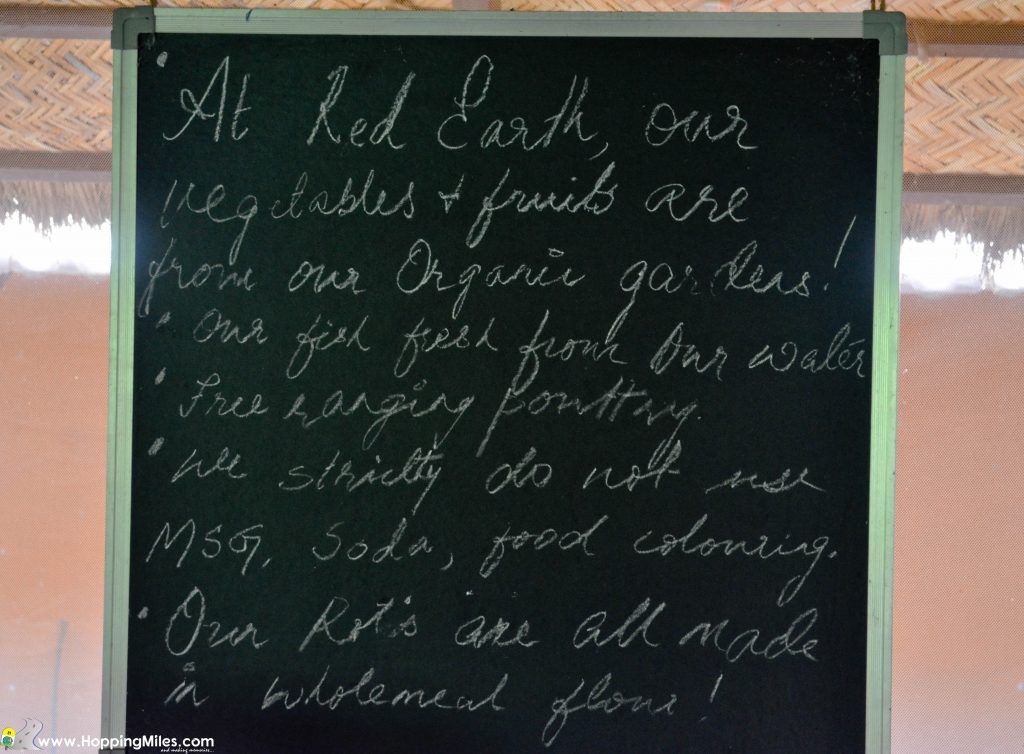 • At Red Earth, our
vegetables + fruits are
from our Organic gardens!
• Our fish fresh from our water
• Free ranging poultry.
• We strictly do not use
MSG, Soda, food colouring.
• Our Roti's are all made
in wholemeal flour!
www.HoppingMiles.com
and making memories...